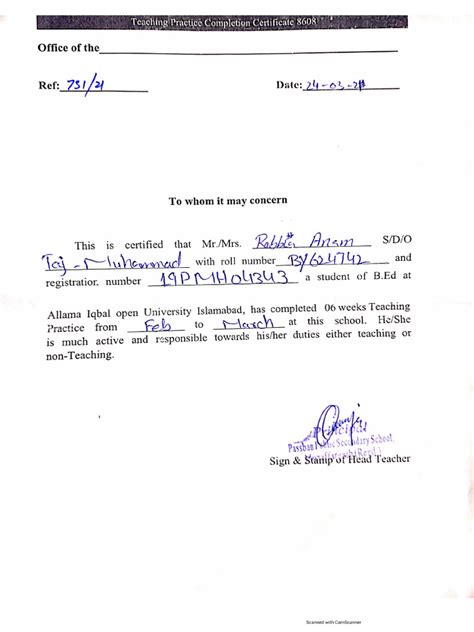 Teaching Practice Completion Certificate 8608
Office of the
Ref: 731/21 Date: 24-03-21
To whom it may concern
This is certified that Mr./Mrs. Rabbia Anam S/D/O
Taj-Muhammad with roll number BY624742 and
registration number 19PMH04343 a student of B.Ed at
Allama Iqbal open University Islamabad, has completed 06 weeks Teaching
Practice from Feb to March at this school. He/She
is much active and responsible towards his/her duties either teaching or
non-Teaching.
Principal
Passban Public Secondary School,
Muzaffargarh (Regd.)
Sign & Stamp of Head Teacher
Scanned with CamScanner